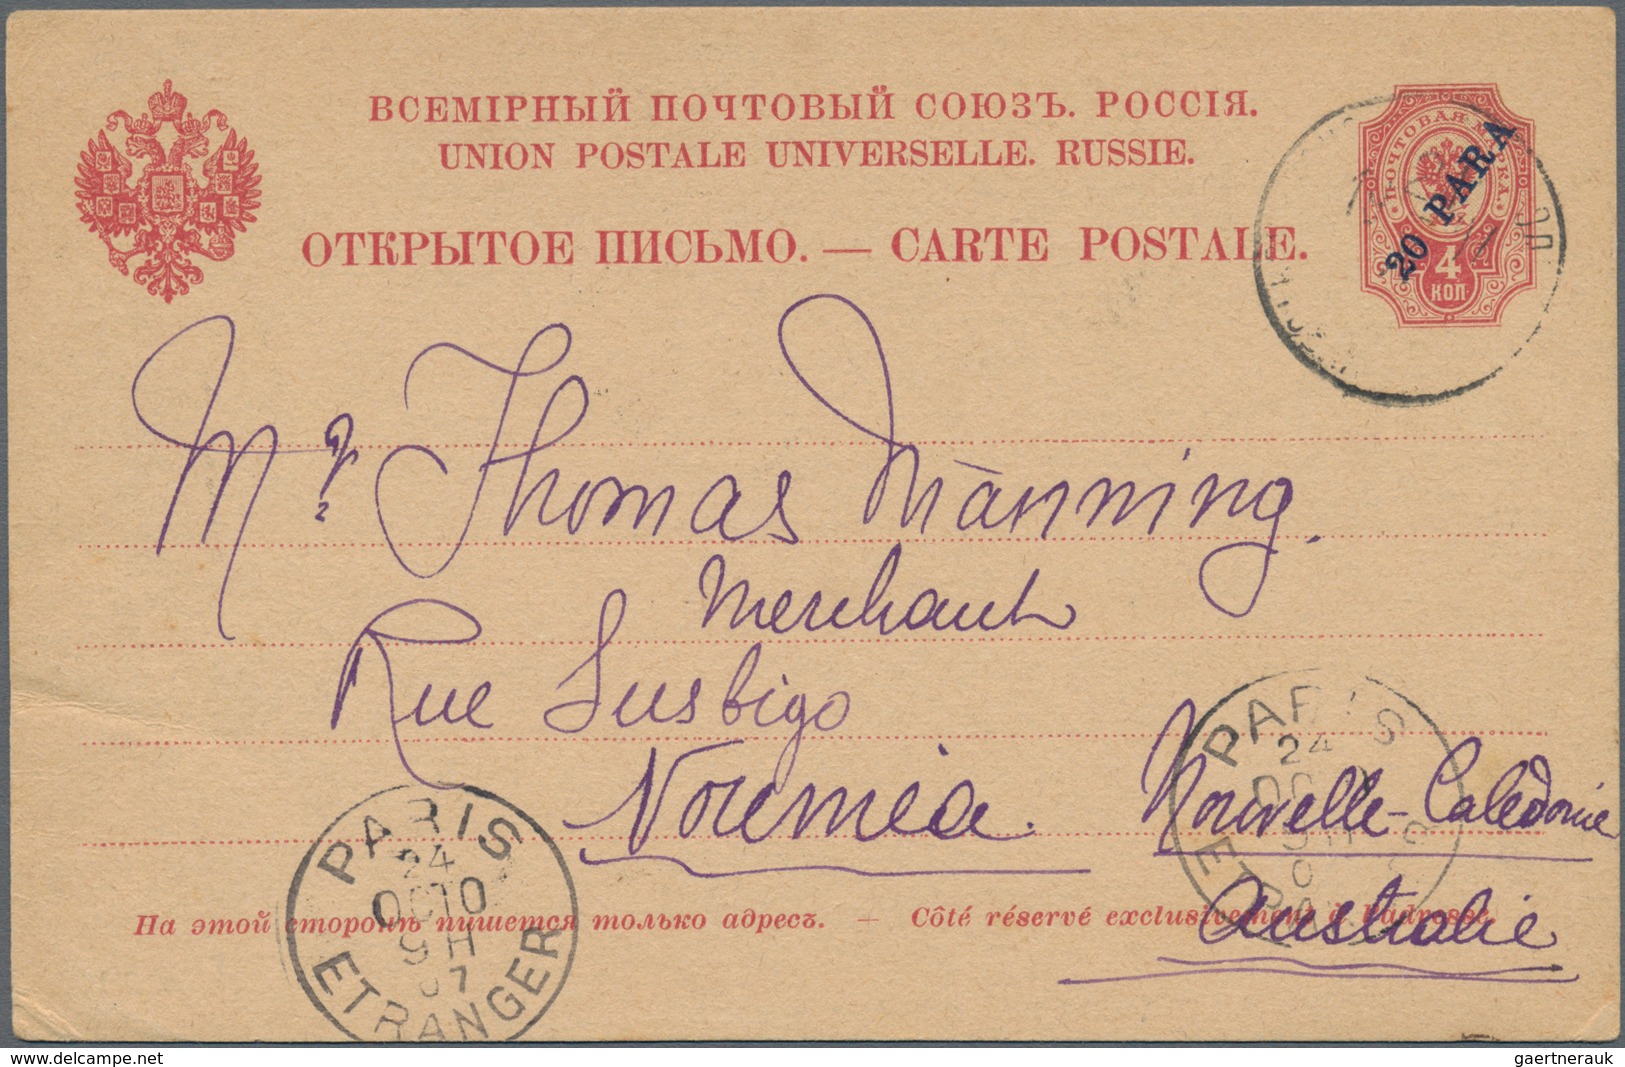 ВСЕМІРНЫЙ ПОЧТОВЫЙ СОЮЗЪ. РОССІЯ.
UNION POSTALE UNIVERSELLE. RUSSIE.
ОТКРЫТОЕ ПИСЬМО. — CARTE POSTALE.
ПОЧТОВАЯ МАРКА
20 PARA
4
КОП
Mr Thomas Manning.
Merchant
Rue Susbigo
Noumea.
Nouvelle-Calédonie
Australie
PARIS
24
OCTO
9 H
07
ETRANGER
PARIS
24
ETRA
На этой сторонѣ пишется только адресъ. — Côté réservé exclusivement à l'adresse.
www.delcampe.net
gaertnerauk